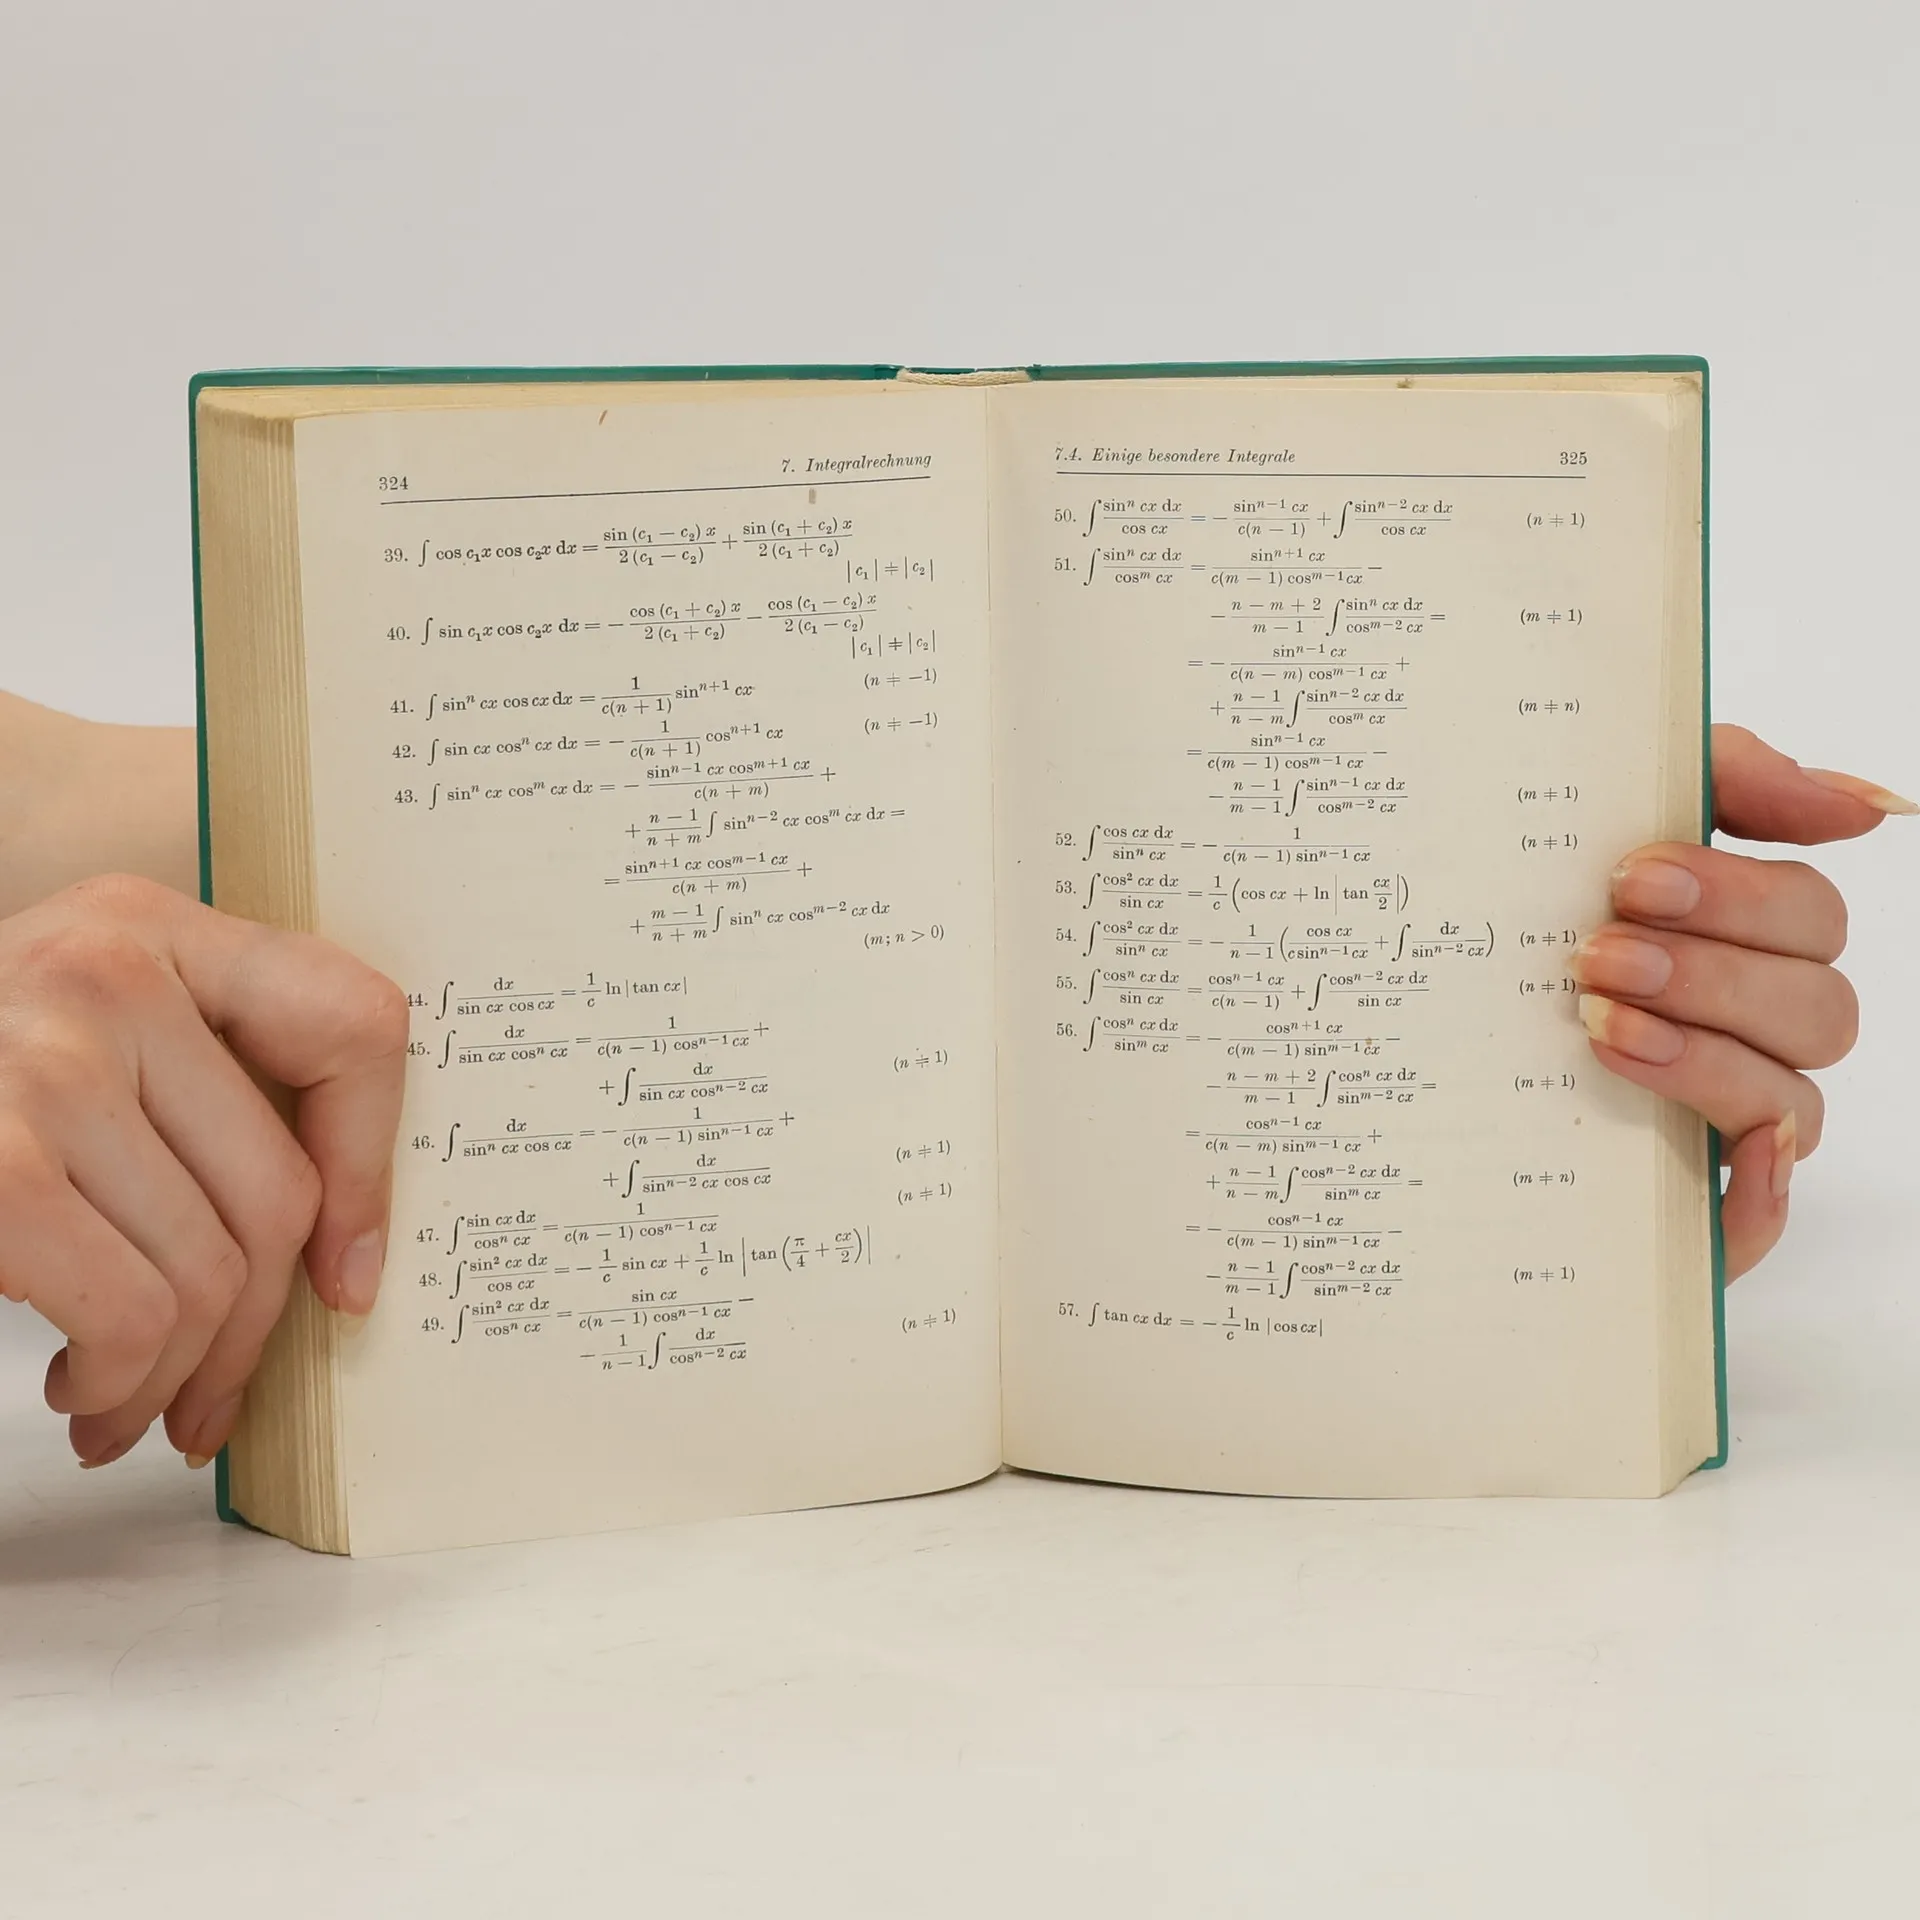 324
7. Integralrechnung
39. ∫ cos c₁x cos c₂x dx = sin (c₁ − c₂) x / 2 (c₁ − c₂) + sin (c₁ + c₂) x / 2 (c₁ + c₂)
|c₁| ≠ |c₂|
40. ∫ sin c₁x cos c₂x dx = − cos (c₁ + c₂) x / 2 (c₁ + c₂) − cos (c₁ − c₂) x / 2 (c₁ − c₂)
|c₁| ≠ |c₂|
41. ∫ sinⁿ cx cos cx dx = 1 / c(n + 1) sinⁿ⁺¹ cx (n ≠ −1)
42. ∫ sin cx cosⁿ cx dx = − 1 / c(n + 1) cosⁿ⁺¹ cx (n ≠ −1)
43. ∫ sinⁿ cx cosᵐ cx dx = − sinⁿ⁻¹ cx cosᵐ⁺¹ cx / c(n + m) +
+ n − 1 / n + m ∫ sinⁿ⁻² cx cosᵐ cx dx =
= sinⁿ⁺¹ cx cosᵐ⁻¹ cx / c(n + m) +
+ m − 1 / n + m ∫ sinⁿ cx cosᵐ⁻² cx dx
(m; n > 0)
44. ∫ dx / sin cx cos cx = 1 / c ln |tan cx|
45. ∫ dx / sin cx cosⁿ cx = 1 / c(n − 1) cosⁿ⁻¹ cx +
+ ∫ dx / sin cx cosⁿ⁻² cx (n ≠ 1)
46. ∫ dx / sinⁿ cx cos cx = − 1 / c(n − 1) sinⁿ⁻¹ cx +
+ ∫ dx / sinⁿ⁻² cx cos cx (n ≠ 1)
47. ∫ sin cx dx / cosⁿ cx = 1 / c(n − 1) cosⁿ⁻¹ cx (n ≠ 1)
48. ∫ sin² cx dx / cos cx = − 1 / c sin cx + 1 / c ln |tan (π / 4 + cx / 2)|
49. ∫ sin² cx dx / cosⁿ cx = sin cx / c(n − 1) cosⁿ⁻¹ cx −
− 1 / n − 1 ∫ dx / cosⁿ⁻² cx (n ≠ 1)
7.4. Einige besondere Integrale
325
50. ∫ sinⁿ cx dx / cos cx = − sinⁿ⁻¹ cx / c(n − 1) + ∫ sinⁿ⁻² cx dx / cos cx (n ≠ 1)
51. ∫ sinⁿ cx dx / cosᵐ cx = sinⁿ⁺¹ cx / c(m − 1) cosᵐ⁻¹ cx −
− n − m + 2 / m − 1 ∫ sinⁿ cx dx / cosᵐ⁻² cx = (m ≠ 1)
= − sinⁿ⁻¹ cx / c(n − m) cosᵐ⁻¹ cx +
+ n − 1 / n − m ∫ sinⁿ⁻² cx dx / cosᵐ cx (m ≠ n)
= sinⁿ⁻¹ cx / c(m − 1) cosᵐ⁻¹ cx −
− n − 1 / m − 1 ∫ sinⁿ⁻¹ cx dx / cosᵐ⁻² cx (m ≠ 1)
52. ∫ cos cx dx / sinⁿ cx = − 1 / c(n − 1) sinⁿ⁻¹ cx (n ≠ 1)
53. ∫ cos² cx dx / sin cx = 1 / c (cos cx + ln |tan cx / 2|)
54. ∫ cos² cx dx / sinⁿ cx = − 1 / n − 1 (cos cx / c sinⁿ⁻¹ cx + ∫ dx / sinⁿ⁻² cx) (n ≠ 1)
55. ∫ cosⁿ cx dx / sin cx = cosⁿ⁻¹ cx / c(n − 1) + ∫ cosⁿ⁻² cx dx / sin cx (n ≠ 1)
56. ∫ cosⁿ cx dx / sinᵐ cx = − cosⁿ⁺¹ cx / c(m − 1) sinᵐ⁻¹ cx −
− n − m + 2 / m − 1 ∫ cosⁿ cx dx / sinᵐ⁻² cx = (m ≠ 1)
= cosⁿ⁻¹ cx / c(n − m) sinᵐ⁻¹ cx +
+ n − 1 / n − m ∫ cosⁿ⁻² cx dx / sinᵐ cx = (m ≠ n)
= − cosⁿ⁻¹ cx / c(m − 1) sinᵐ⁻¹ cx −
− n − 1 / m − 1 ∫ cosⁿ⁻² cx dx / sinᵐ⁻² cx (m ≠ 1)
57. ∫ tan cx dx = − 1 / c ln |cos cx|